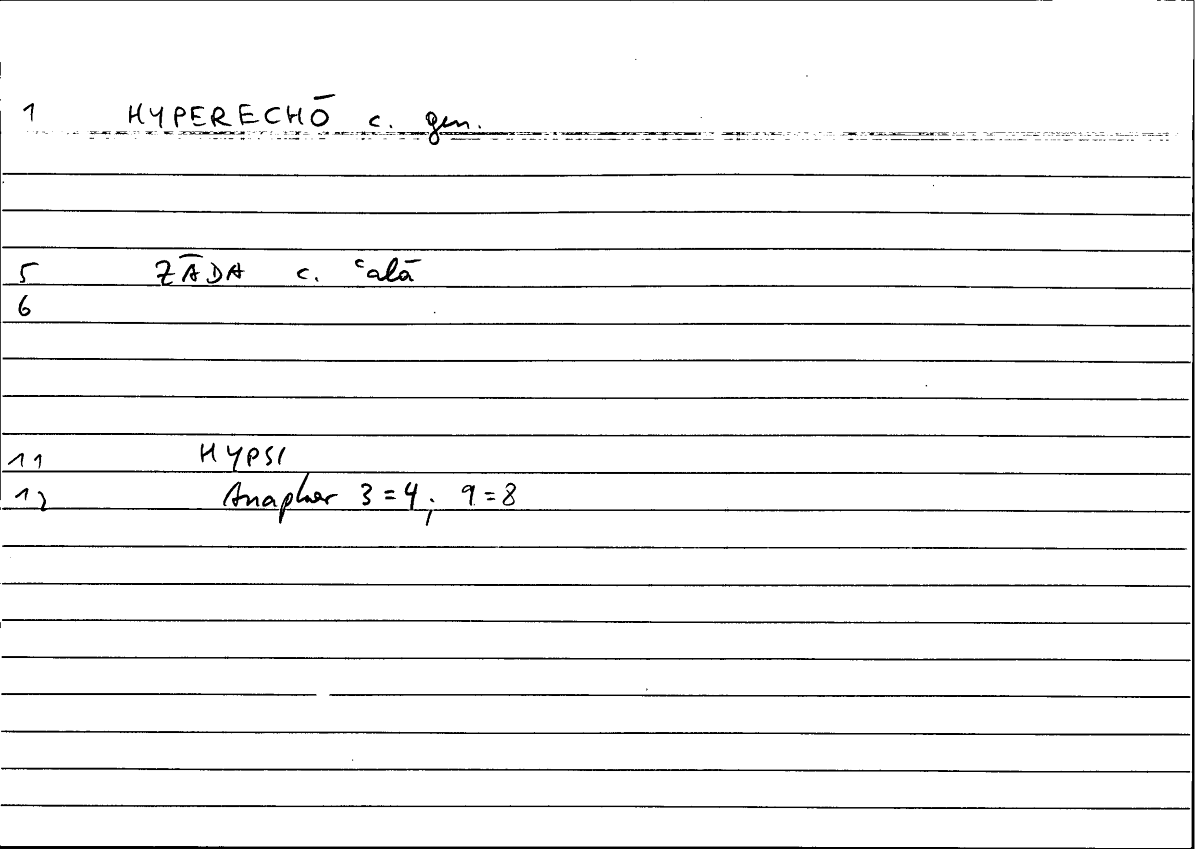 1 HYPERECHŌ c. gen.
5 ZĀDA c. ʿalā
6
11 HYPSI
12 Anapher 3=4; 9=8